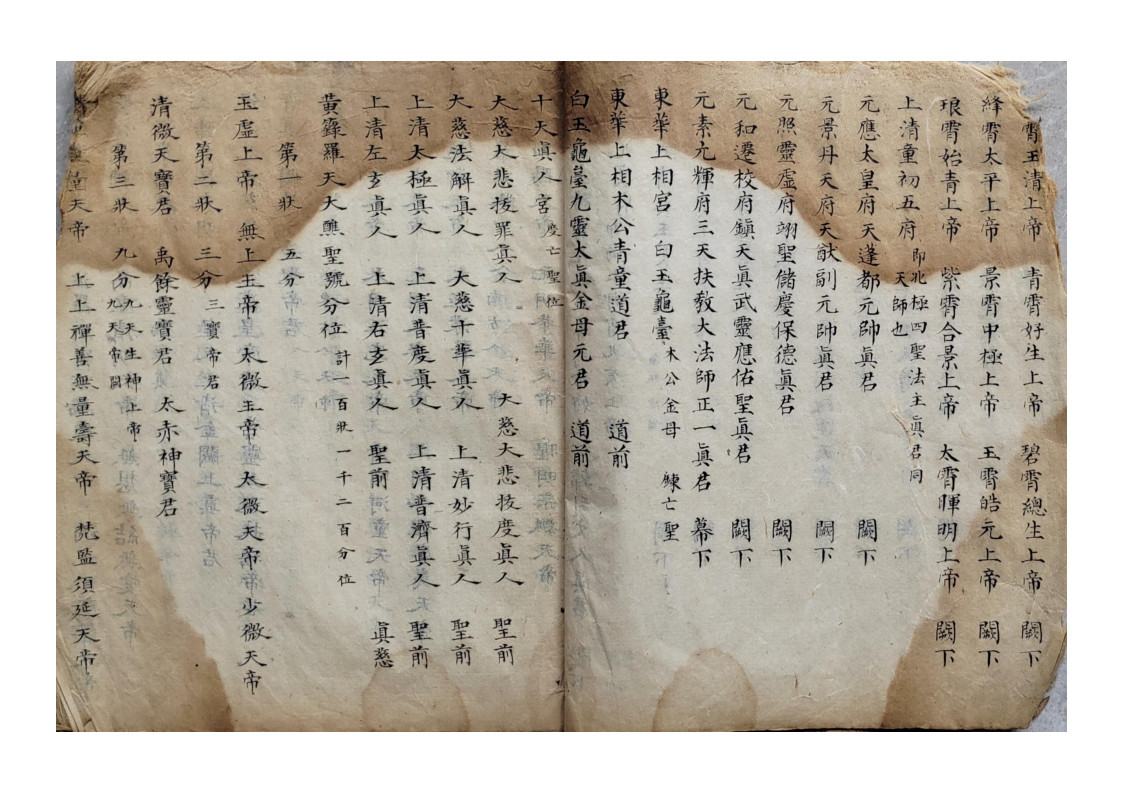 霄玉清上帝 青霄好生上帝 碧霄總生上帝 闕下
絳霄太平上帝 景霄中極上帝 玉霄皓元上帝 闕下
琅霄始青上帝 紫霄合景上帝 太霄暉明上帝 闕下
上清童初五府 即北極四聖法主眞君同
天師也
元應太皇府天蓬都元帥眞君 闕下
元景丹天府天猷副元帥眞君 闕下
元照靈虛府翊聖儲慶保德眞君 闕下
元和遷校府鎭天眞武靈應佑聖眞君 闕下
元素亢輝府三天扶敎大法師正一眞君 幕下
東華上相宮 白玉龜臺 木公金母 煉亡聖
東華上相木公青童道君 道前
白玉龜臺九靈太眞金母元君 道前
十天眞人宮 度亡聖位
大慈大悲拔罪眞人 大慈大悲拔度眞人 聖前
大慈法解眞人 大慈千華眞人 上清妙行眞人 聖前
上清太極眞人 上清普度眞人 上清普濟眞人 聖前
上清左玄眞人 上清右玄眞人 聖前 眞慈
黃籙羅天大醮聖號分位 計一百狀一千二百分位
第一狀 五分
玉虛上帝 無上玉帝 太微玉帝 太微天帝 少微天帝
第二狀 三分 三寶帝君
清微天寶君 禹餘靈寶君 太赤神寶君
第三狀 九分 九天生神上帝
九天帝
無量天帝 上上禪善無量壽天帝 梵監須延天帝